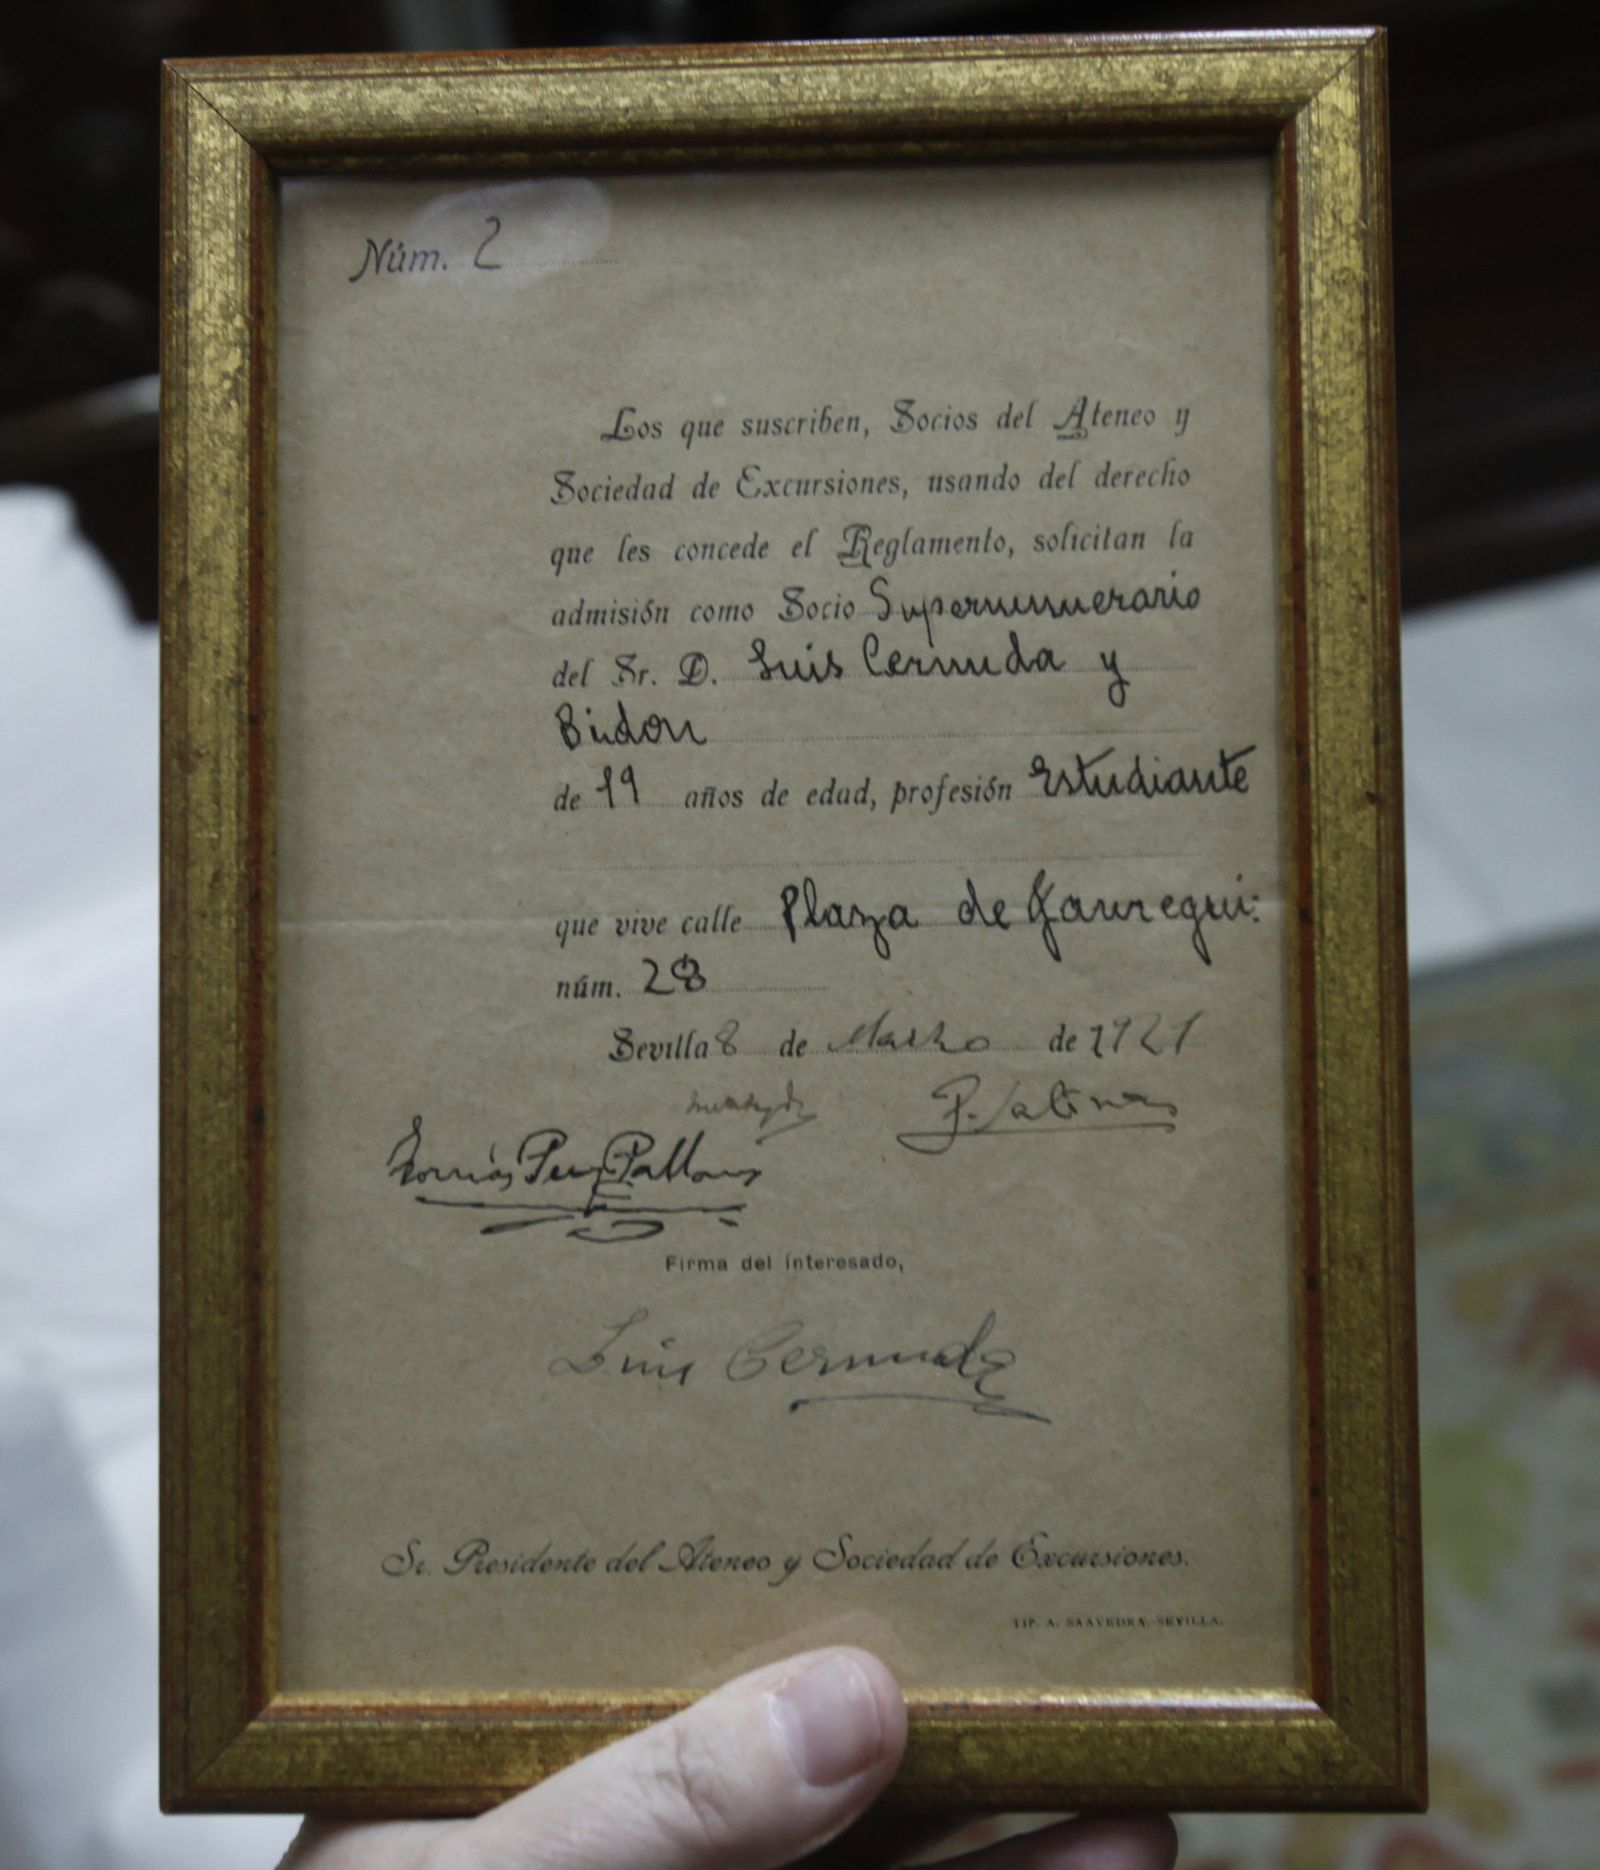 Núm. 2
Los que suscriben, Socios del Ateneo y
Sociedad de Excursiones, usando del derecho
que les concede el Reglamento, solicitan la
admisión como Socio Supernumerario
del Sr. D. Luis Cernuda y
Bidou
de 19 años de edad, profesión Estudiante
que vive calle Plaza de Jauregui:
núm. 28
Sevilla 8 de Marzo de 1921
P. Salinas
Tomás Perez
Firma del interesado,
Luis Cernuda
Sr. Presidente del Ateneo y Sociedad de Excursiones.
TIP. A. SAAVEDRA.-SEVILLA.